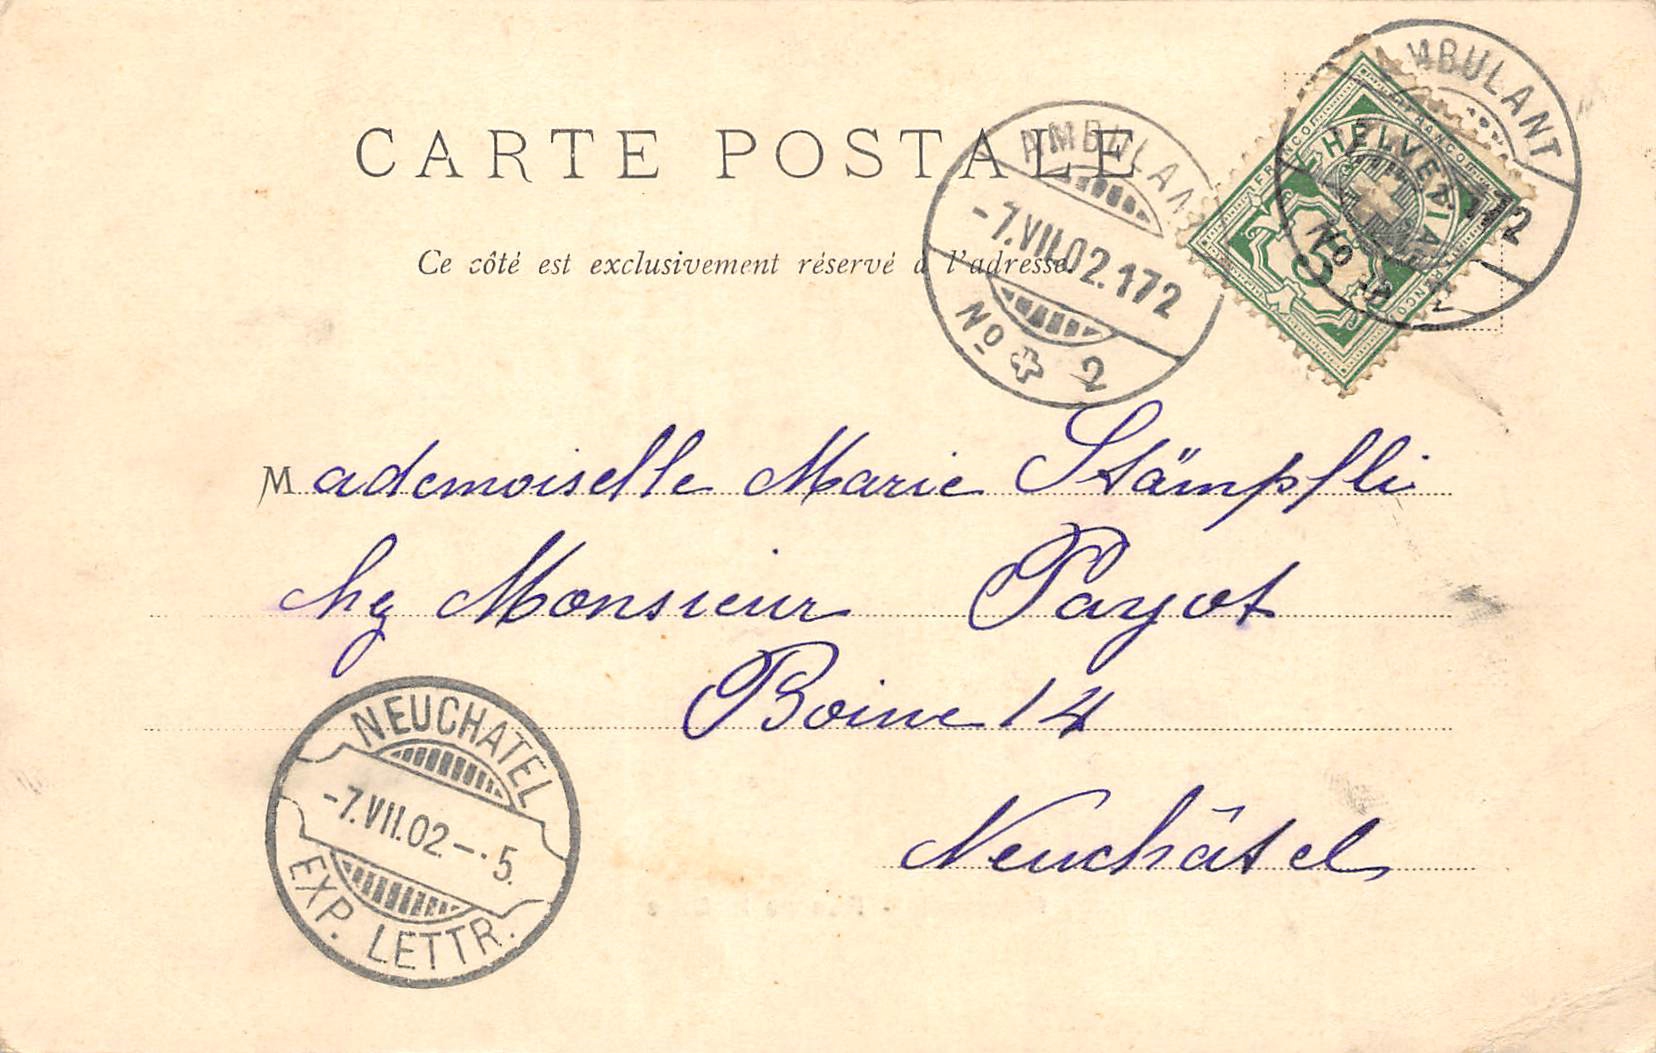 CARTE POSTALE
Ce côté est exclusivement réservé à l'adresse.
AMBULANT
-7.VII.02.172
No 2
AMBULANT
172
No
FRANCO
FRANCO
FRANCO
HELVETIA
5
Mademoiselle Marie Stämpfli
chez Monsieur Payot
Boine 14
Neuchâtel
NEUCHATEL
-7.VII.02.-.5.
EXP. LETTR.